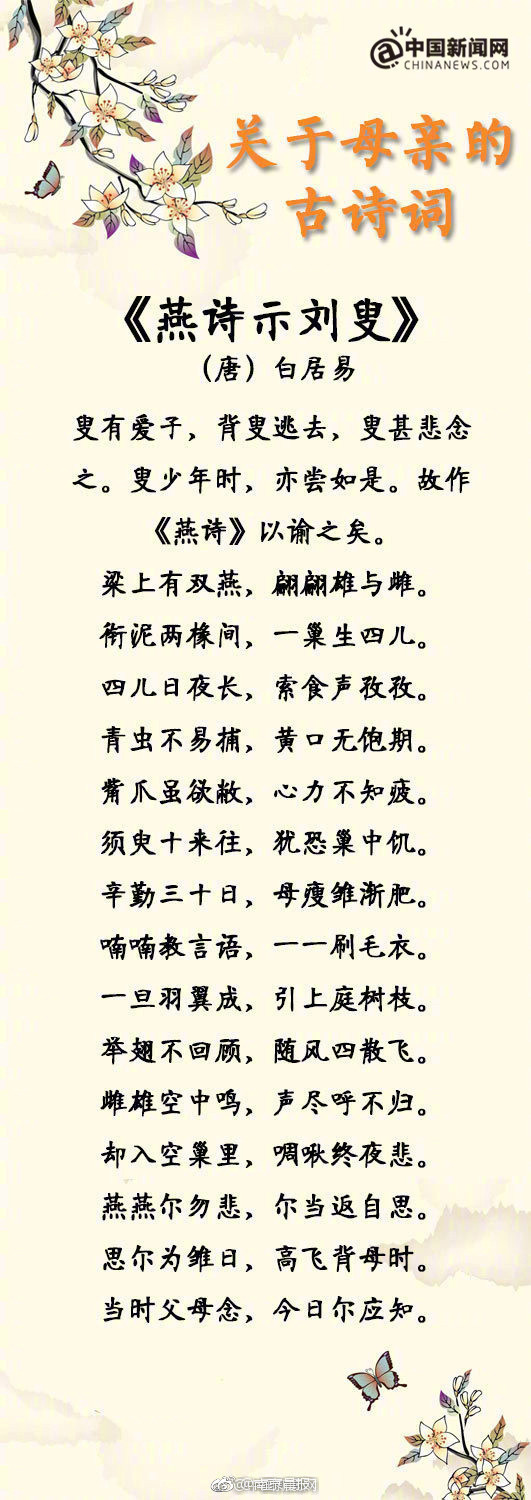 @中国新闻网
CHINANEWS.COM
关于母亲的
古诗词
《燕诗示刘叟》
（唐）白居易
叟有爱子，背叟逃去，叟甚悲念
之。叟少年时，亦尝如是。故作
《燕诗》以谕之矣。
梁上有双燕，翩翩雄与雌。
衔泥两椽间，一巢生四儿。
四儿日夜长，索食声孜孜。
青虫不易捕，黄口无饱期。
觜爪虽欲敝，心力不知疲。
须臾十来往，犹恐巢中饥。
辛勤三十日，母瘦雏渐肥。
喃喃教言语，一一刷毛衣。
一旦羽翼成，引上庭树枝。
举翅不回顾，随风四散飞。
雌雄空中鸣，声尽呼不归。
却入空巢里，啁啾终夜悲。
燕燕尔勿悲，尔当返自思。
思尔为雏日，高飞背母时。
当时父母念，今日尔应知。